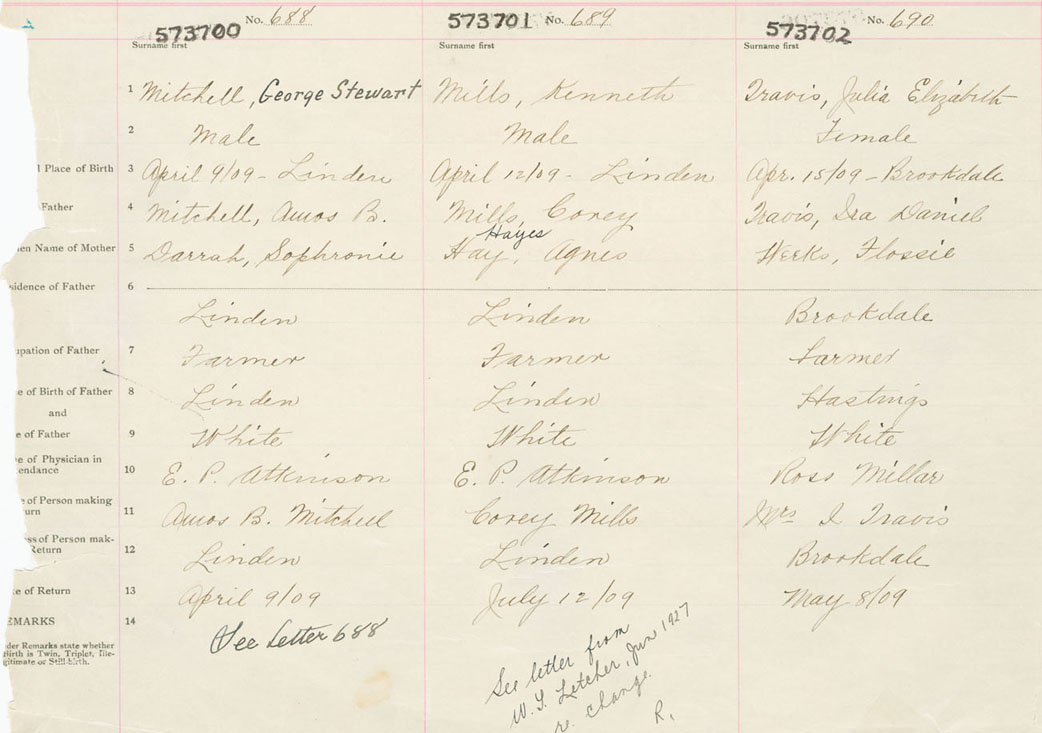 573700 No. 688 573701 No. 689 573702 No. 690
Surname first Surname first Surname first
1 Mitchell, George Stewart Mills, Kenneth Travis, Julia Elizabeth
2 Male Male Female
l Place of Birth 3 April 9/09 - Linden April 12/09 - Linden Apr. 15/09 - Brookdale
Father 4 Mitchell, Amos B. Mills, Corey Travis, Ira Daniel
Hayes
en Name of Mother 5 Darrah, Sophronie Hay, Agnes Weeks, Flossie
sidence of Father 6
Linden Linden Brookdale
upation of Father 7 Farmer Farmer Farmer
e of Birth of Father 8 Linden Linden Hastings
and
e of Father 9 White White White
e of Physician in
endance 10 E. P. Atkinson E. P. Atkinson Ross Millar
e of Person making
urn 11 Amos B. Mitchell Corey Mills Mrs I Travis
ss of Person mak-
Return 12 Linden Linden Brookdale
e of Return 13 April 9/09 July 12/09 May 8/09
EMARKS 14
See Letter 688
der Remarks state whether
Birth is Twin, Triplet, Ille-
gitimate or Still-birth.
See letter from
W. Letcher, 1927
re. change.
R.